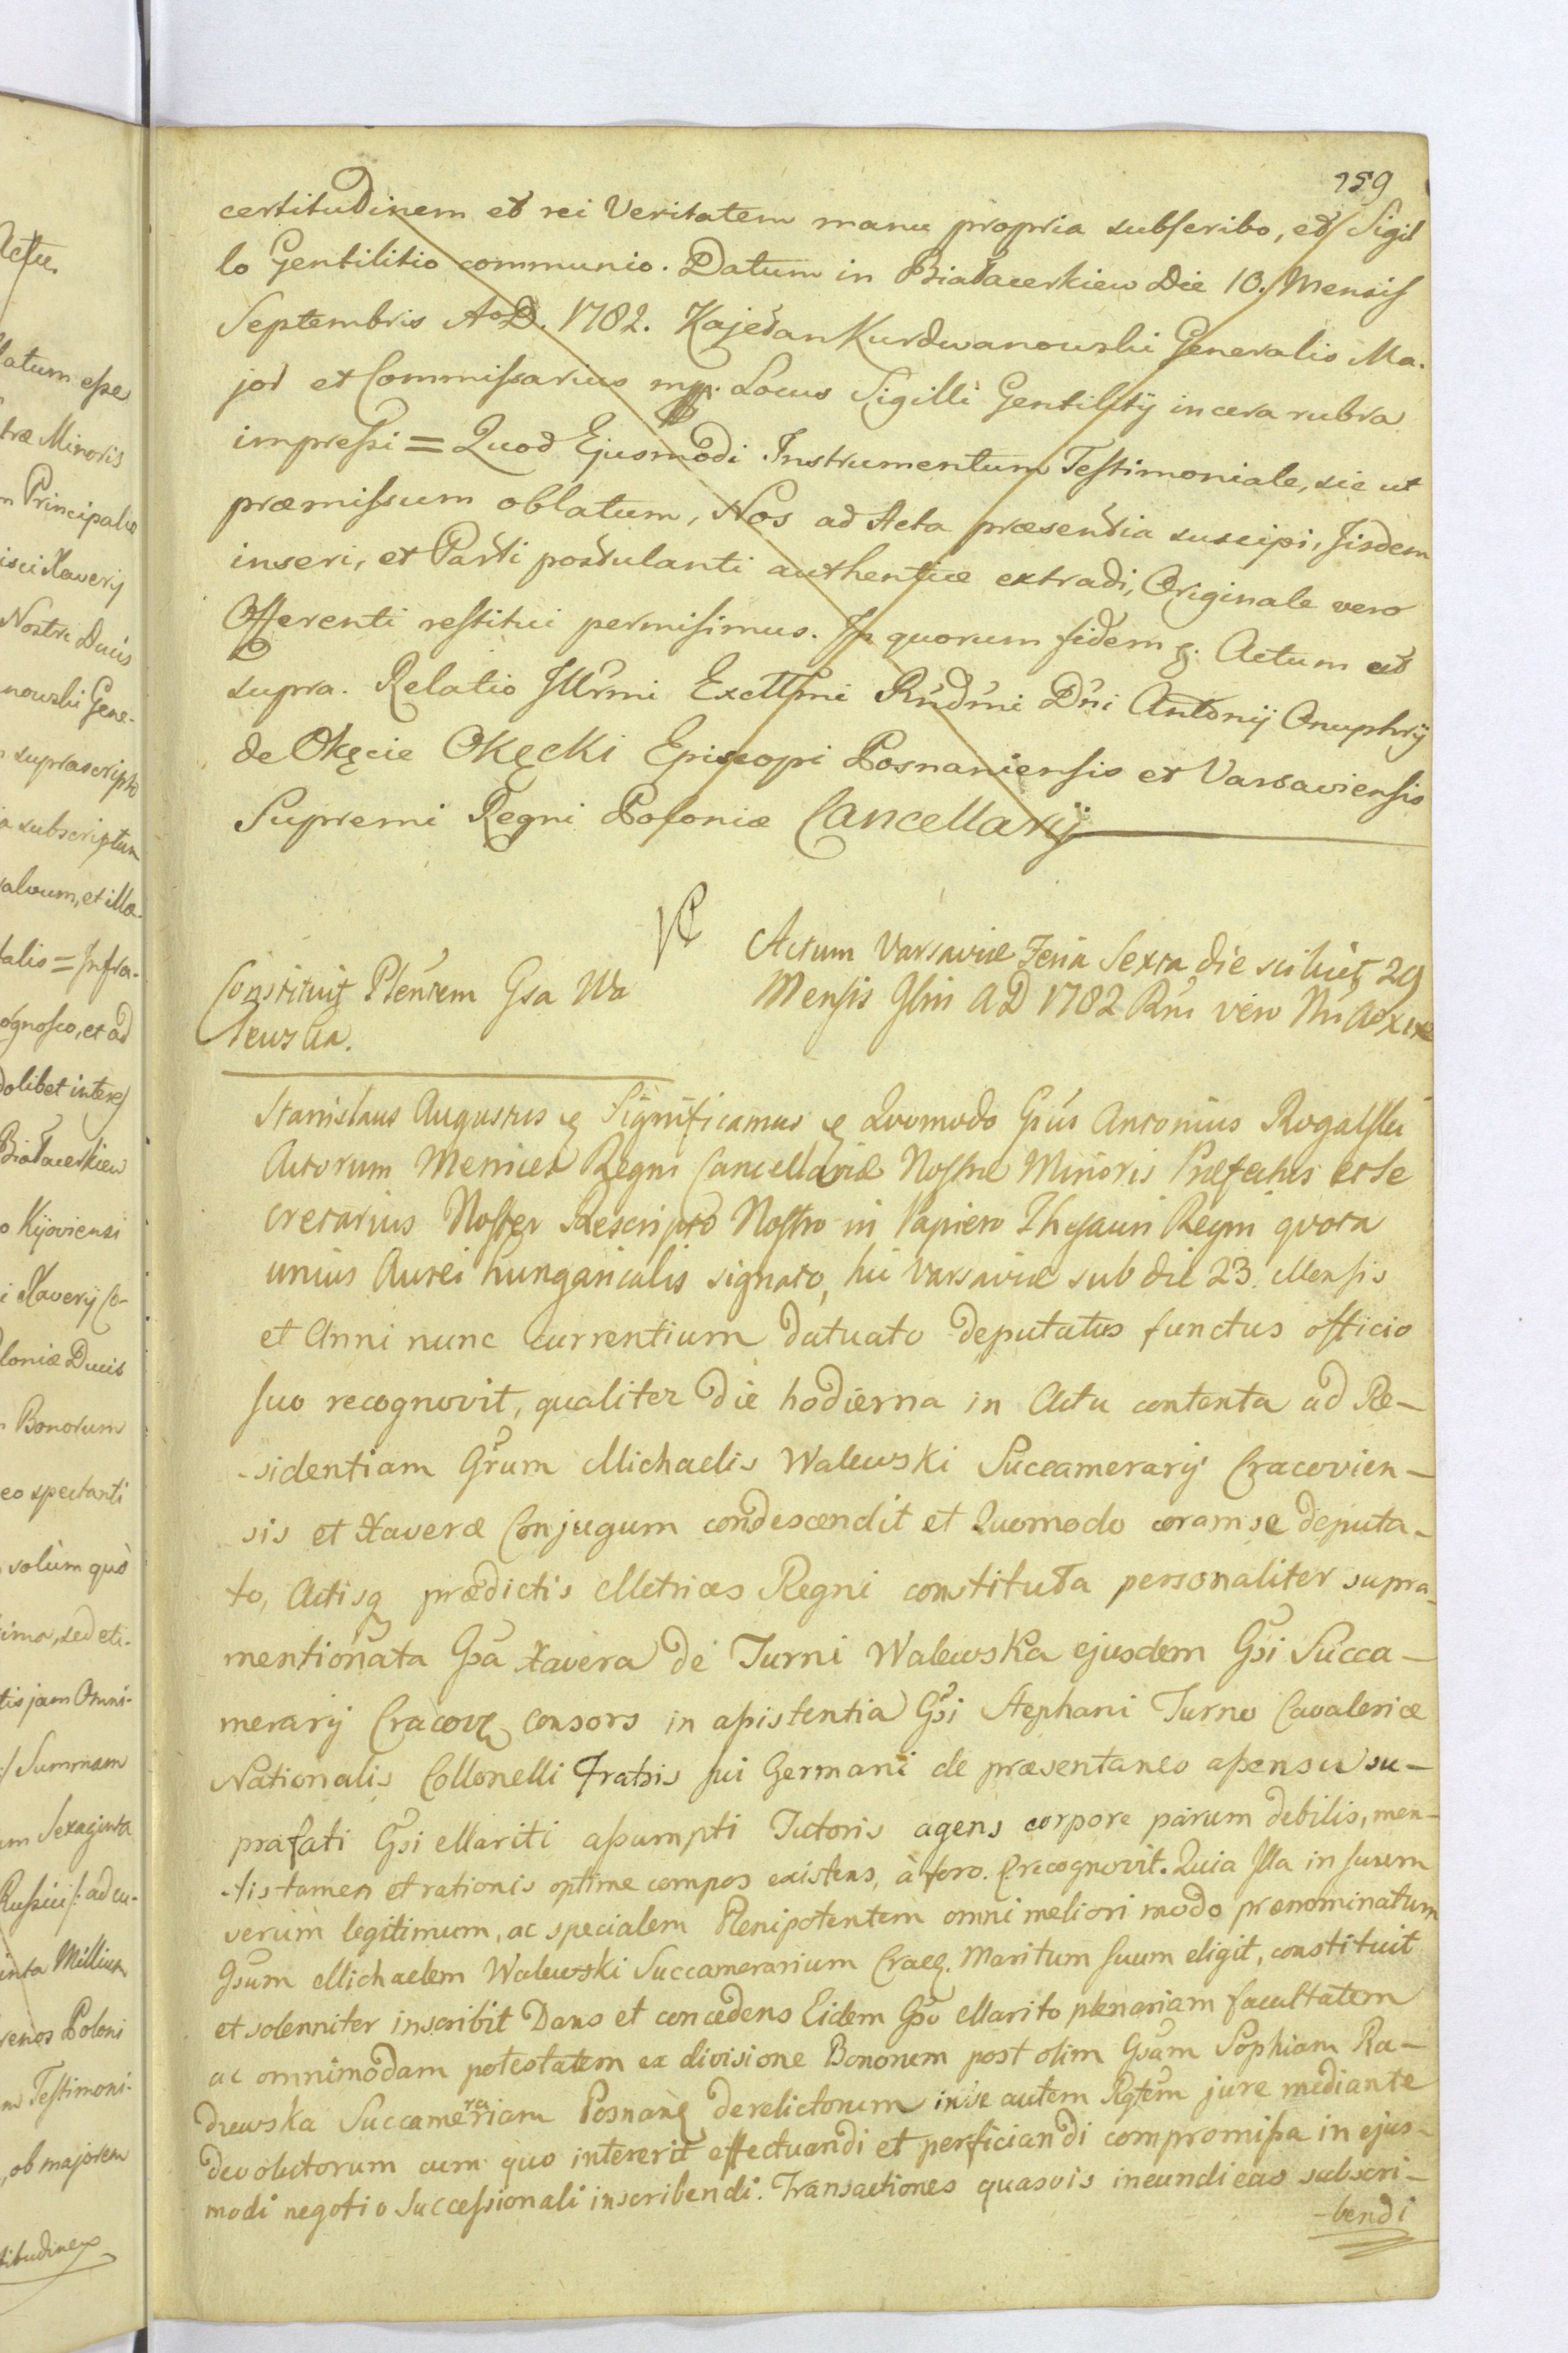 159
certitudinem et rei Veritatem manu propria subscribo, et Sigil
lo Gentilitio communio. Datum in Białacerkiew Die 10. Mensis
Septembris Ao D. 1782. Kajetan Kurdwanowski Generalis Ma-
jor et Commissarius mp. Locus Sigilli Gentilitij in cera rubra
impressi = Quod Ejusmodi Instrumentum Testimoniale, sic ut
præmissum oblatum, Nos ad Acta præsentia suscipi, Iisdem
inseri, et Parti postulanti authentice extradi, Originale vero
Offerenti restitui permisimus. In quorum fidem &. Actum ut
supra. Relatio Illrmi Excllmi Rndmi Dni Antonij Onuphrij
de Okęcie Okęcki Episcopi Posnaniensis et Varsaviensis
Supremi Regni Poloniæ Cancellarij
Actum Varsaviæ Feria Sexta die scilicet 29
Mensis 9bris AD 1782 Rni vero Nri Ao XIX
Constituit Plentem Gsa Wa
lewska.
Stanislaus Augustus & Significamus & Quomodo Gsus Antonius Rogalski
Actorum Metrices Regni Cancellariæ Nostræ Minoris Præfectus et Se
cretarius Noster Rescripto Nostro in Papiero Thesauri Regni quota
unius Aurei hungaricalis signato, hic Varsaviæ sub die 23. Mensis
et Anni nunc currentium datuato deputatus functus officio
suo recognovit, qualiter die hodierna in Actu contenta ad Re-
-sidentiam Grum Michaelis Walewski Succamerarij Cracovien-
sis et Xaveræ Conjugum condescendit et Quomodo coram se deputa-
to, Actisq prædictis Metrices Regni constituta personaliter supra-
mentionata Gsa Xavera de Turni Walewska ejusdem Gsi Succa-
merarij Cracov consors in assistentia Gsi Stephani Turno Cavaleriæ
Nationalis Collonelli Fratris sui Germani de præsentaneo assensu su-
prafati Gsi Mariti assumpti Tutoris agens corpore parum debilis, men-
tis tamen et rationis optime compos existens, à foro. Precognovit. Quia Illa in suum
verum legitimum, ac specialem Plenipotentem omni meliori modo prænominatum
Gsum Michaelem Walewski Succamerarium Crac. Maritum suum eligit, constituit
et solenniter inscribit Dans et concedens Eidem Gso Marito plenariam facultatem
ac omnimodam potestatem ex divisione Bonorum post olim Gsam Sophiam Ra-
drewska Succamerariam Posnan derelictorum in se autem Rgtem jure mediante
devolutorum cum quo intererit effectuandi et perficiandi compromissa in ejus-
modi negotio Successionali inscribendi. Transactiones quasvis ineundi eas subscri-
-bendi
Actu.
latum esse
træ Minoris
m Principalis
isci Xaverij
Nostri Ducis
nowski Gene-
suprascripto
a subscriptum
salvum, et illæ-
talis = Infra-
ognosco, et ad
dolibet interes
Białacerkiew
o Kijoviensi
i Xaverij Co-
loniæ Ducis
Bonorum
eo spectanti
solùm quò
ima, sed eti-
tis jam Omni-
Summam
um Sexaginta
Russici/: ad cu-
inta Millium
renos Poloni
m Testimoni-
, ob majorem
titudinem